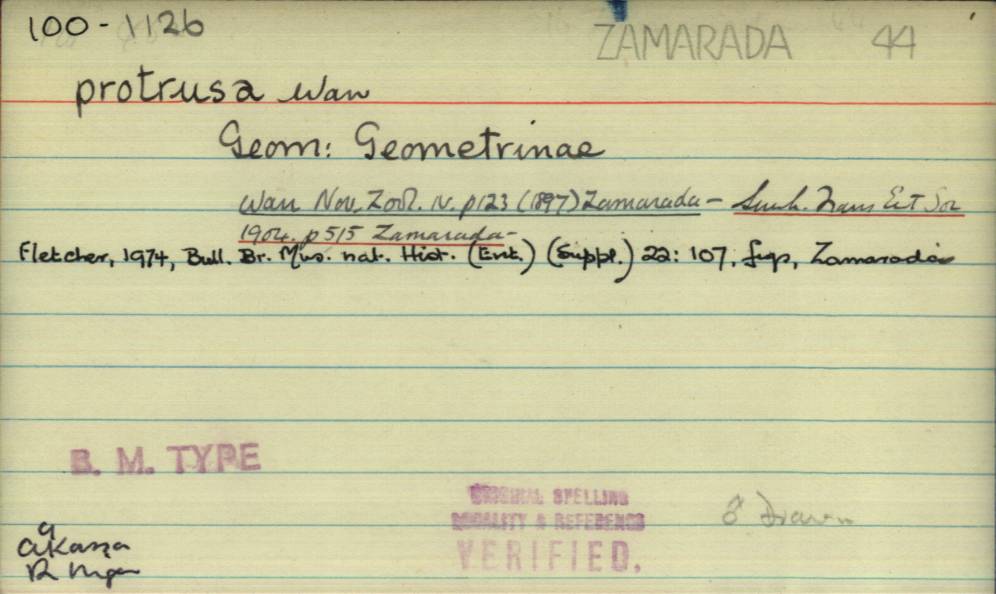 100-1126
ZAMARADA 44
protrusa Warr
Geom: Geometrinae
Warr Nov. Zool. IV. p123 (1897) Zamarada - Swinh. Trans Ent Soc
1904. p515 Zamarada-
Fletcher, 1974, Bull. Br. Mus. nat. Hist. (Ent.) (Suppl.) 22: 107, figs, Zamarada
B. M. TYPE
ORIGINAL SPELLING
LOCALITY & REFERENCE
VERIFIED.
♂ drawn
Akassa
R Niger